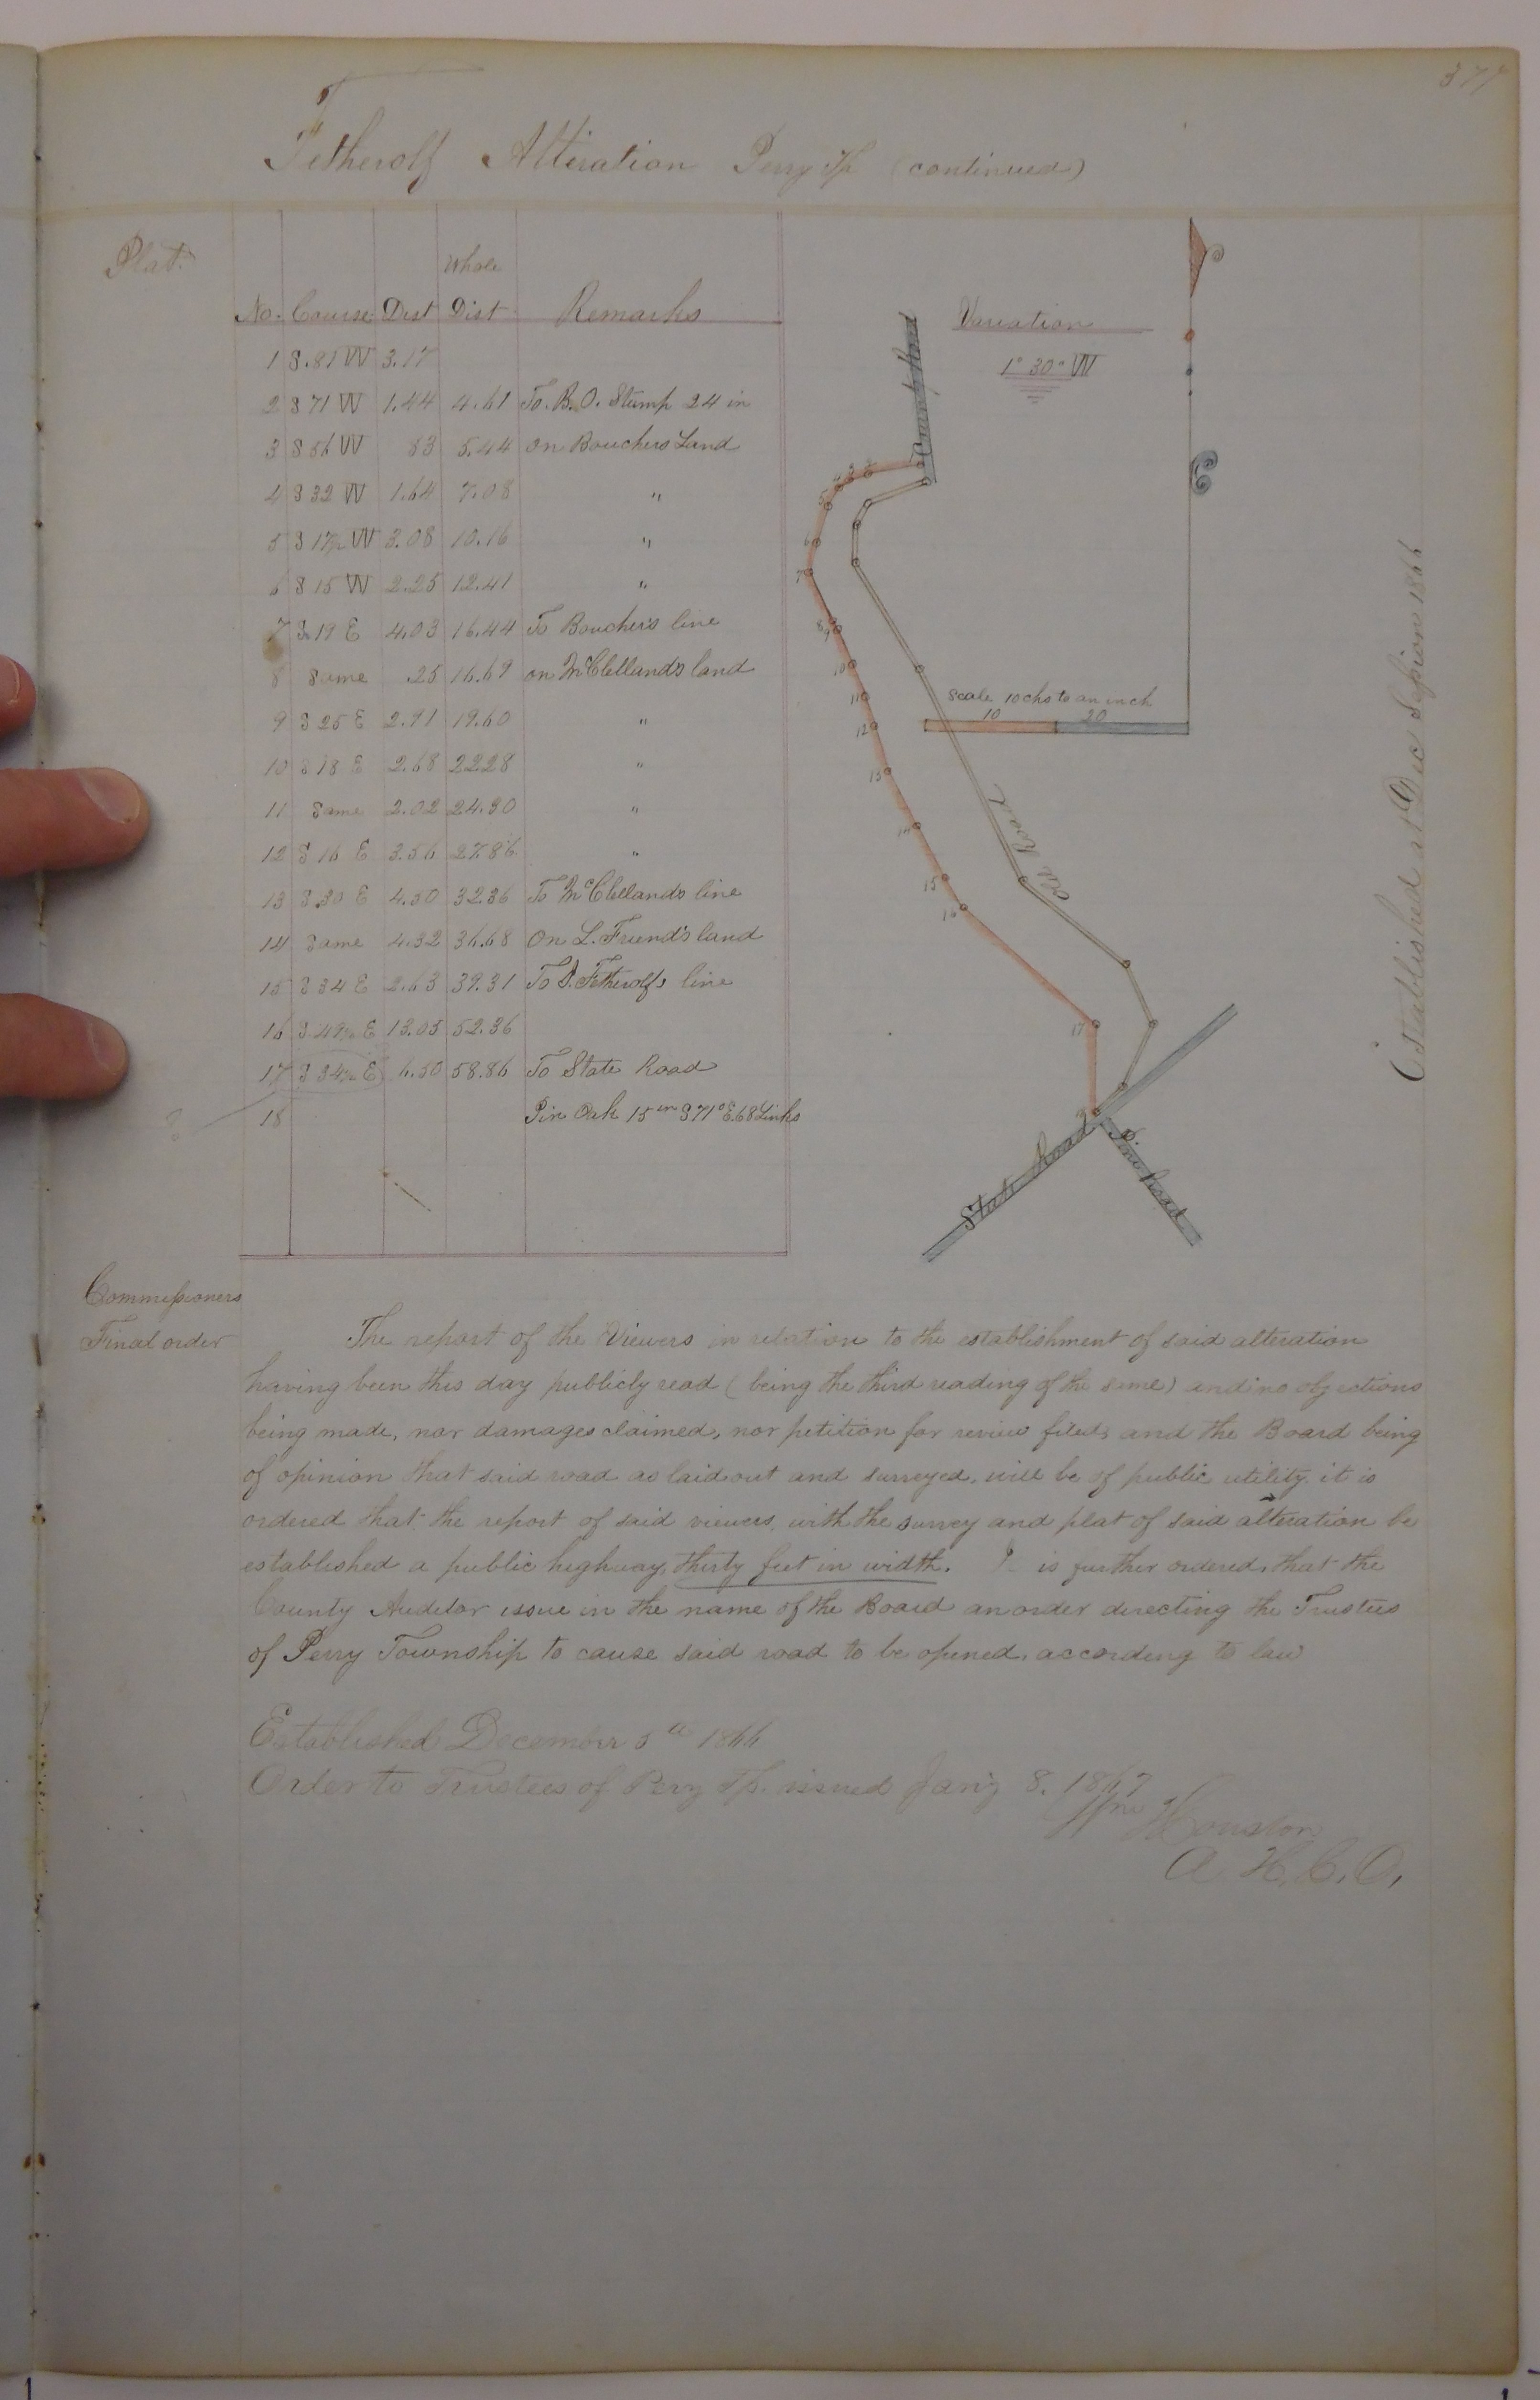 377
Fetherolf Alteration Perry Tp (continued)
Plat.
Whole
No. Course Dist Dist Remarks
1 S. 81 W 3.17
2 S 71 W 1.44 4.61 To B.O. Stump 24 in
3 S 56 W 83 5.44 on Bouchers Land
4 S 32 W 1.64 7.08 "
5 S 17½ W 3.08 10.16 "
6 S 15 W 2.25 12.41 "
7 S 19 E 4.03 16.44 To Boucher's line
8 Same .25 16.69 on McClelland's land
9 S 25 E 2.91 19.60 "
10 S 18 E 2.68 22.28 "
11 Same 2.02 24.30 "
12 S 16 E 3.56 27.86 "
13 S 30 E 4.50 32.36 To McClellands line
14 Same 4.32 36.68 On L. Friend's land
15 S 34 E 2.63 39.31 To D. Fetherolfs line
16 S 49½ E 13.05 52.36
17 S 34½ E 6.50 58.86 To State Road
18 Pin Oak 15 in S 71° E. 68 Links
?
Variation
1° 30" W
County Road
1 2 3 4 5 6 7 8 9 10 11 12 13 14 15 16 17 18
Scale 10 chs to an inch
10 20
Old Road
State Road
Pine Road
Established at Dec Session 1866
Commissioners
Final order
The report of the Viewers in relation to the establishment of said alteration
having been this day publicly read (being the third reading of the same) and no objections
being made, nor damages claimed, nor petition for review filed, and the Board being
of opinion that said road as laid out and surveyed, will be of public utility it is
ordered that the report of said viewers, with the survey and plat of said alteration be
established a public highway, thirty feet in width. It is further ordered, that the
County Auditor issue in the name of the Board an order directing the Trustees
of Perry Township to cause said road to be opened, according to law
Established December 5th 1866
Order to Trustees of Perry Tp. issued Jan'y 8. 1867
Wm Houston
A. H. C. O.